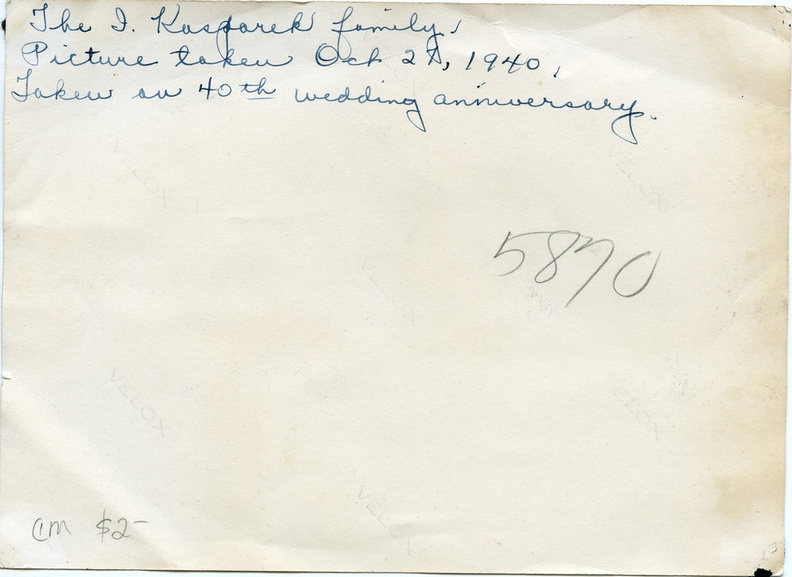 The I. Kasparek family,
Picture taken Oct 27, 1940,
Taken on 40th wedding anniversary.
VELOX
VELOX
5870
VELOX
VELOX
VELOX
VELOX
CM $2-